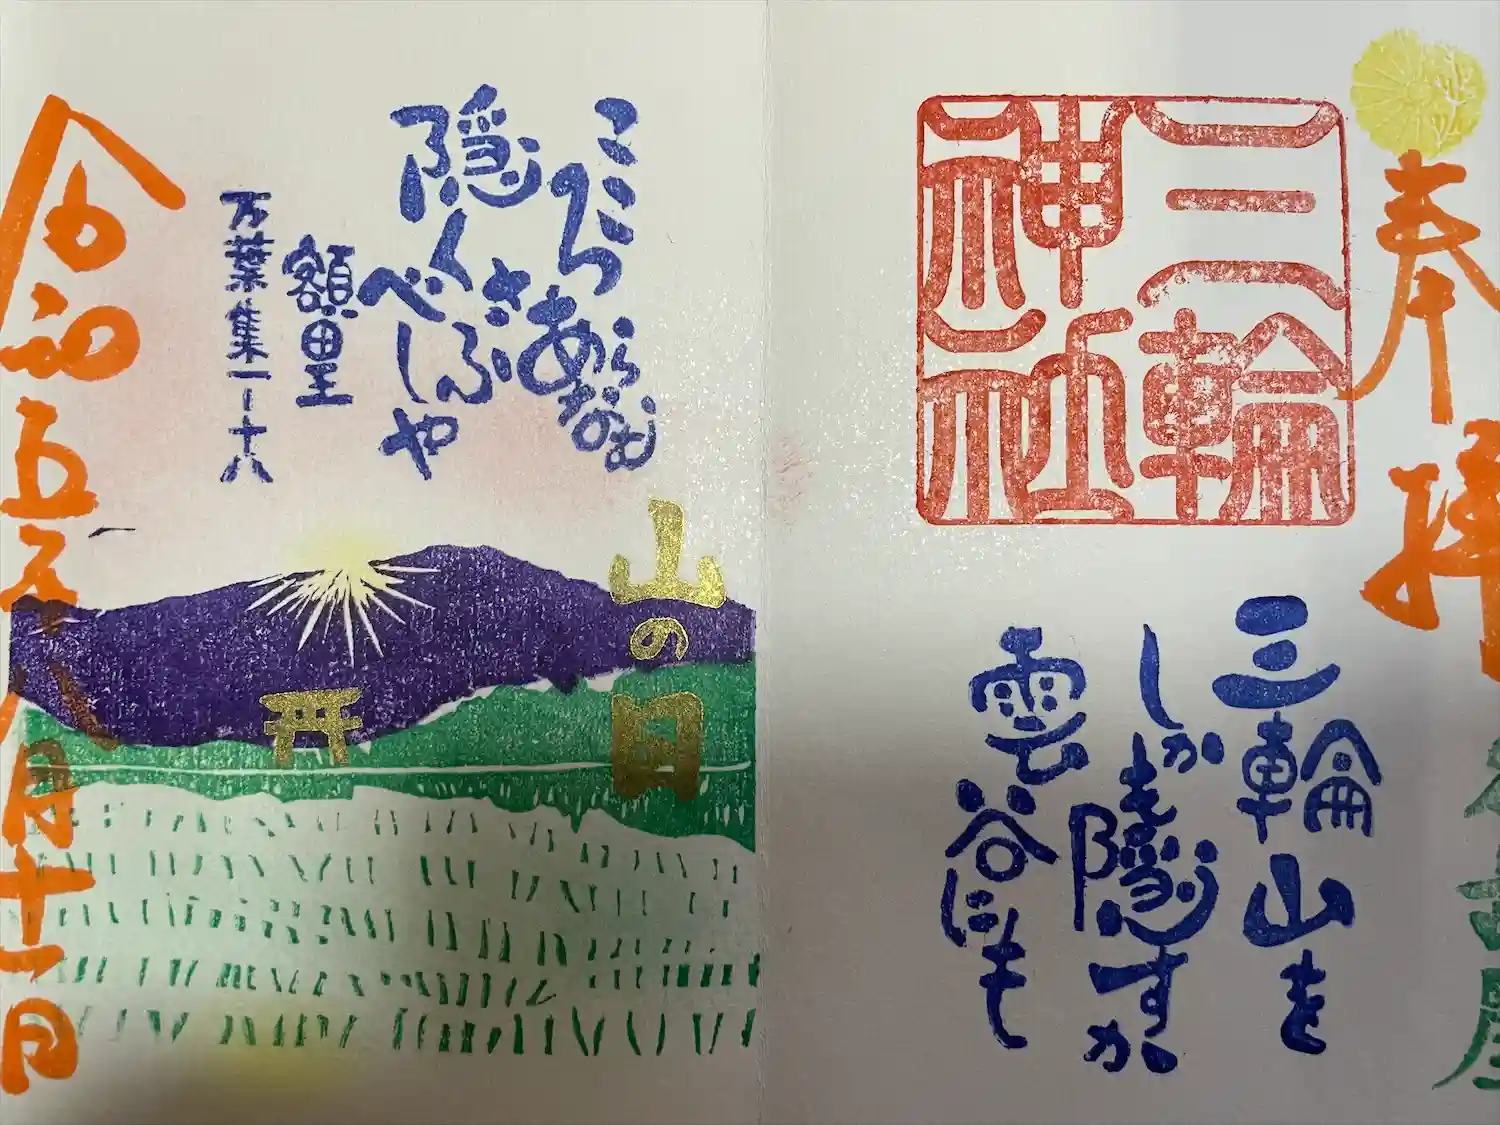 奉拝
三輪
神社
三輪山を
しかも隠すか
雲谷にも
こころあらなむ
隠くさぶべしや
額田王
万葉集一ー十八
山の日
令和五年八月十一日